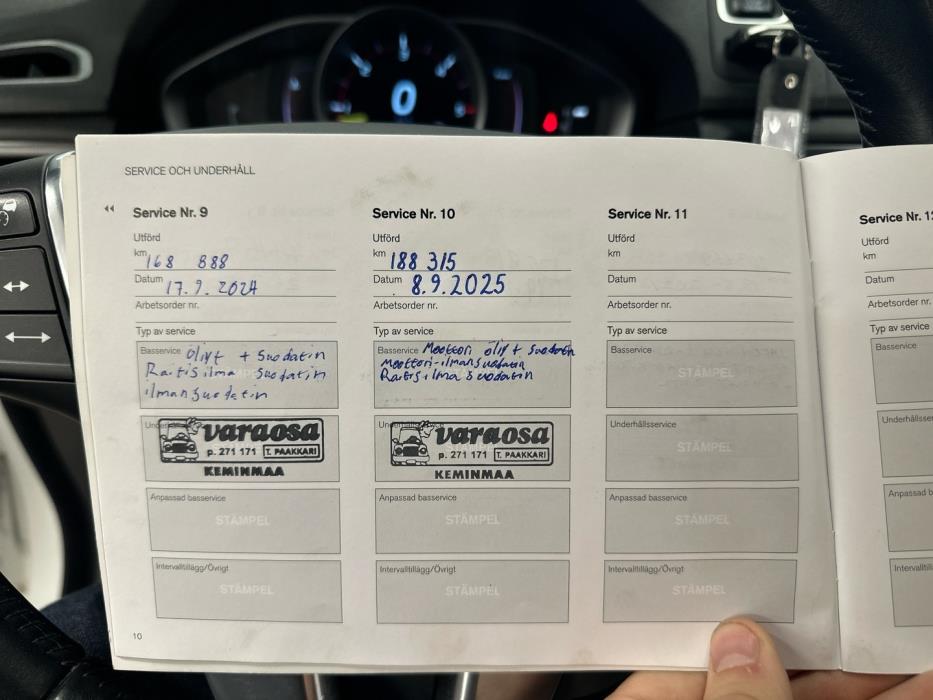 SERVICE OCH UNDERHÅLL
Service Nr. 9
Utförd
km 168 888
Datum 17.9.2024
Arbetsorder nr.
Typ av service
Basservice Öljyt + Suodatin
Raitisilma Suodatin
ilmanSuodatin
varaosa
p. 271 171 T. PAAKKARI
KEMINMAA
Anpassad basservice
STÄMPEL
Intervalltillägg/Övrigt
STÄMPEL
10
Service Nr. 10
Utförd
km 188 315
Datum 8.9.2025
Arbetsorder nr.
Typ av service
Basservice Moottori öljyt Suodatin
Moottori-ilmansuodatin
Raitisilma Suodatin
varaosa
p. 271 171 T. PAAKKARI
KEMINMAA
Anpassad basservice
STÄMPEL
Intervalltillägg/Övrigt
STÄMPEL
Service Nr. 11
Utförd
km
Datum
Arbetsorder nr.
Typ av service
Basservice
STÄMPEL
Underhållsservice
STÄMPEL
Anpassad basservice
STÄMPEL
Intervalltillägg/Övrigt
STÄMPEL
Service Nr.
Utförd
km
Datum
Arbetsorder nr.
Typ av service
Basservice
0